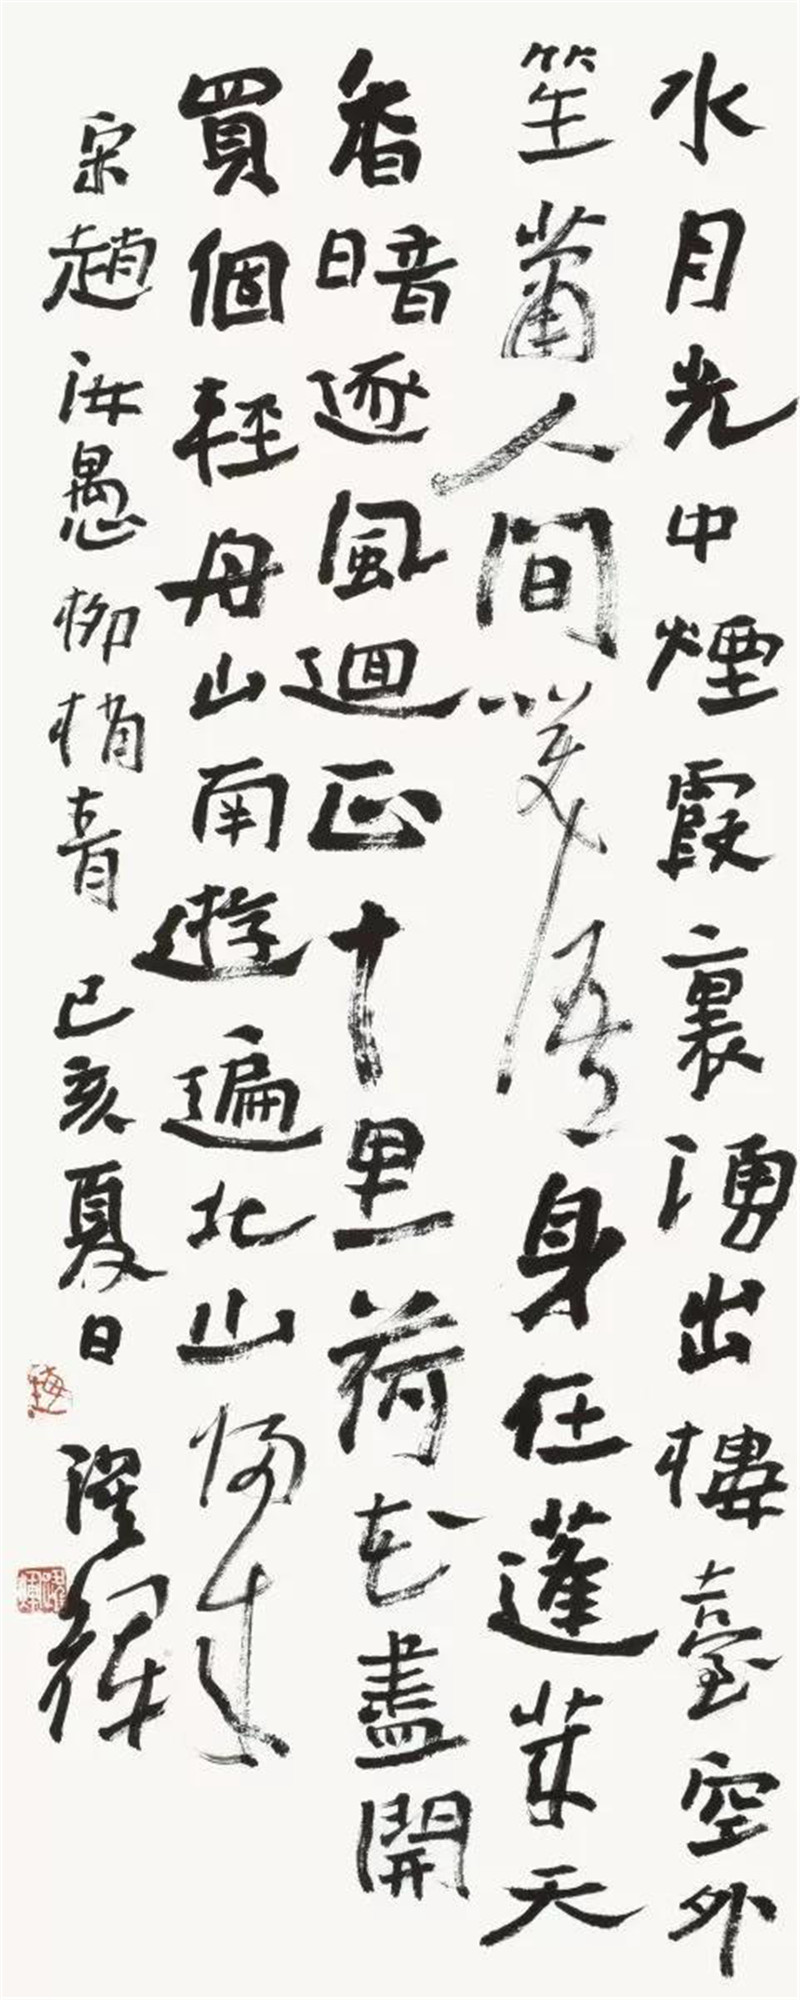 水月光中煙霞裏湧出樓臺空外
笙蕭人間笑語身在蓬萊天
香暗逐風迴正十里荷花盡開
買個輕舟山南遊遍北山歸來
宋趙汝愚柳梢青 己亥夏日